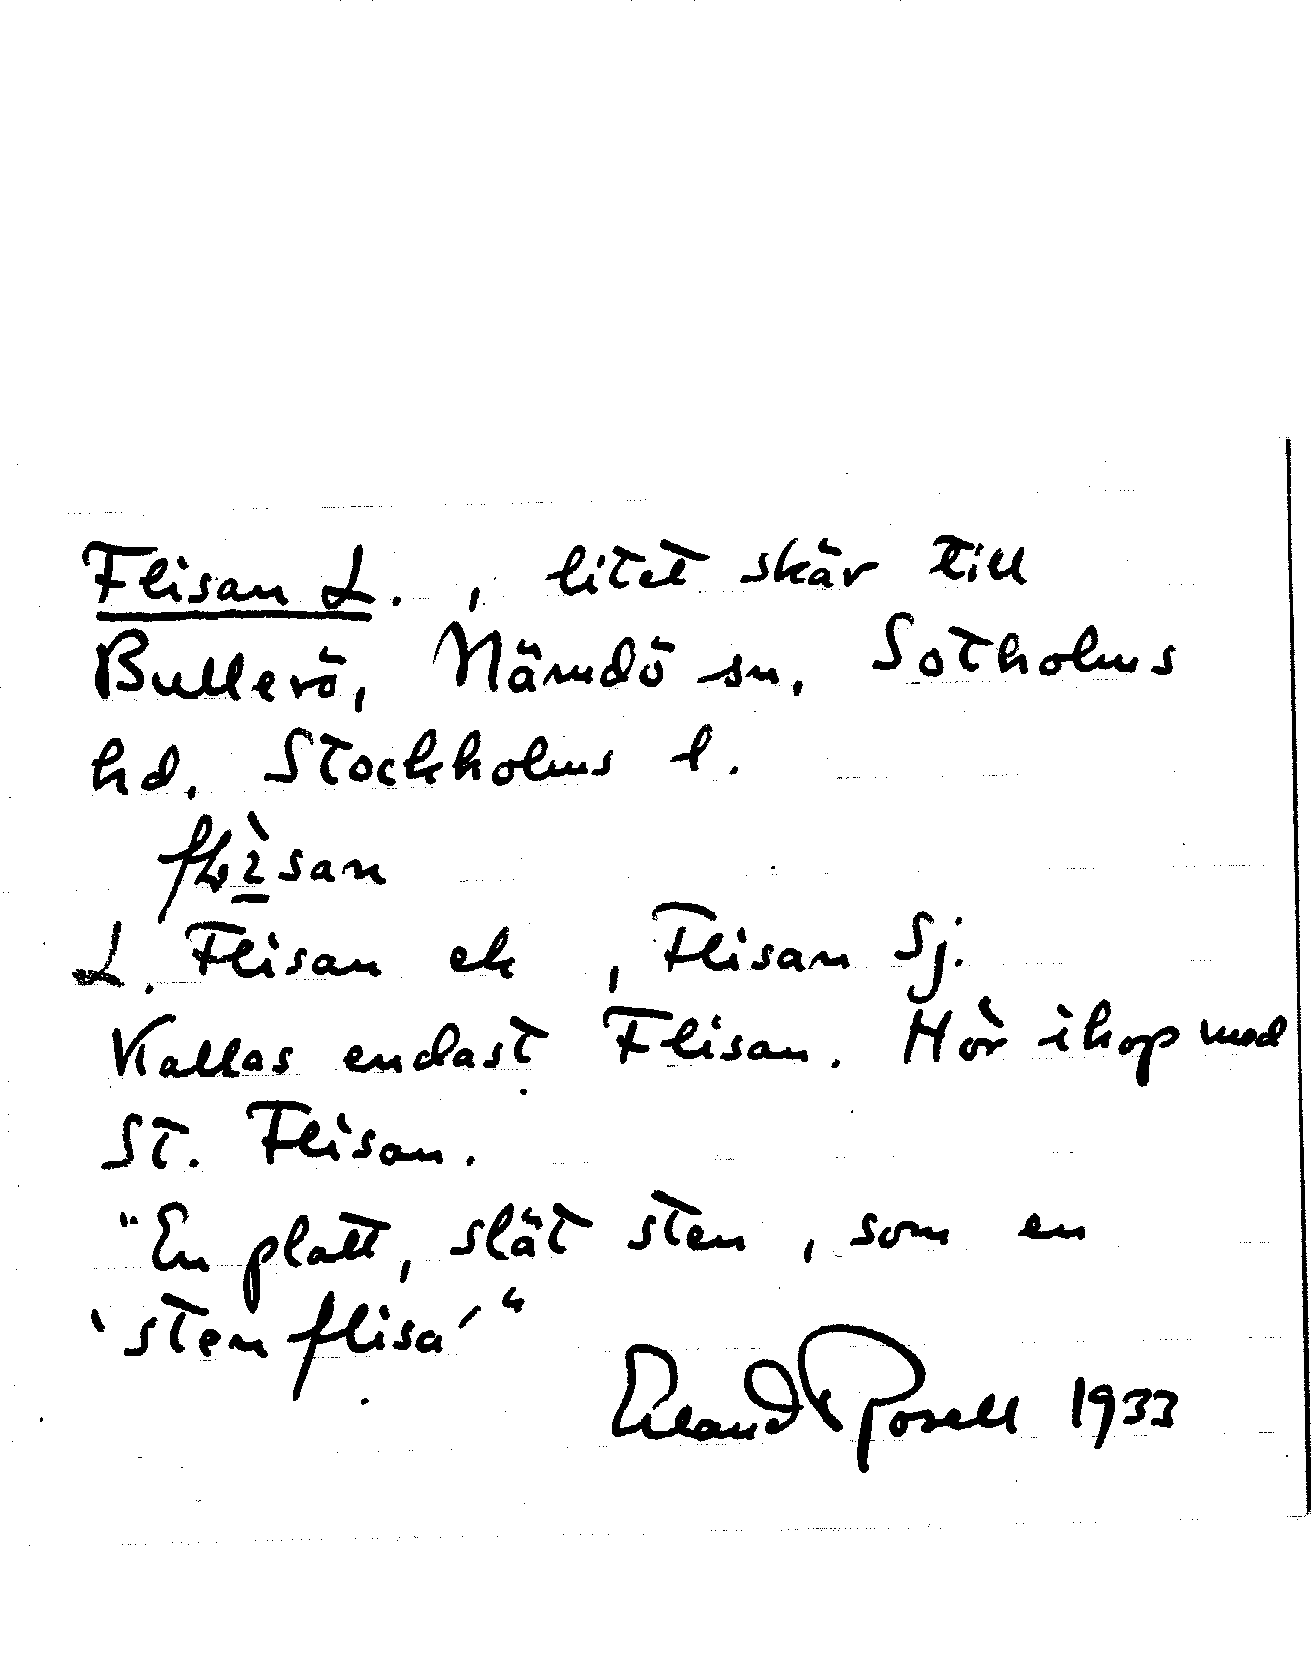 Flisan L. , litet skär till
Bullerö, Nämdö sn, Sotholms
hd. Stockholms l.
flìsan
L. Flisan ek , Flisan Sj.
Kallas endast Flisan. Hör ihop med
St. Flisan.
"En platt, slät sten, som en
'sten flisa' "
Erland Rosell 1933